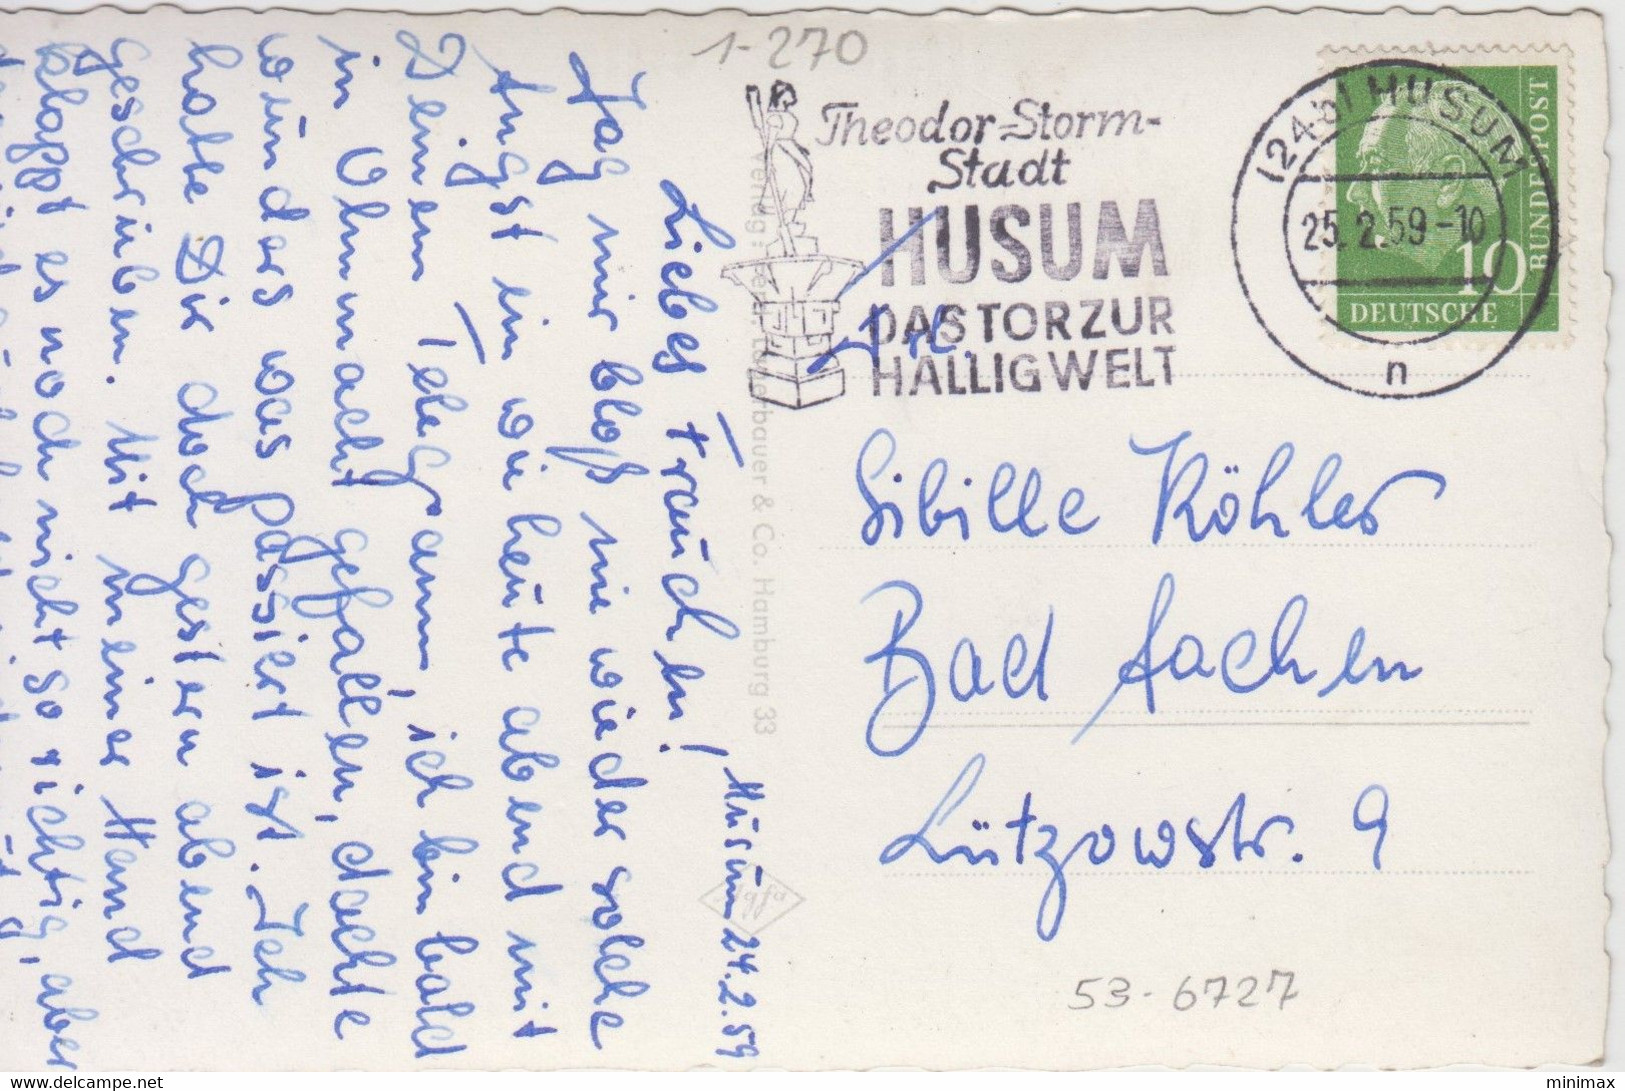 1-270
Theodor-Storm-
Stadt
HUSUM
DAS TOR ZUR
HALLIGWELT
(24b) HUSUM
25.2.59-10
n
BUNDESPOST
10
DEUTSCHE
Sibille Köhler
Bad Aachen
Lützowstr. 9
53-6727
Husum 24.2.59
Liebes Frauchen!
Jag mir bloß nie wieder solche
Angst ein wie heute abend mit
Deinem Telegramm, ich bin bald
in Ohnmacht gefallen, dachte
wunders was passiert ist. Ich
hatte Dir doch gestern abend
geschrieben. Mit meiner Hand
klappt es noch nicht so richtig, aber
Verlag: Ferd. Lagerbauer & Co. Hamburg 33
Agfa
www.delcampe.net
minimax